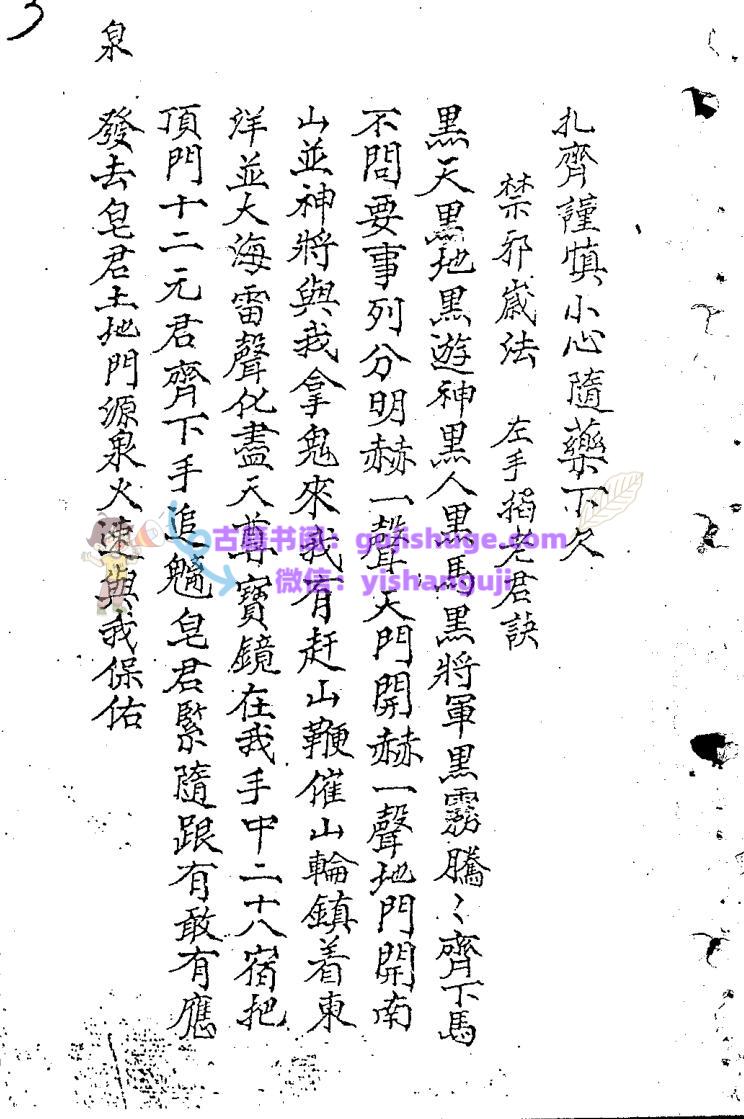 扎齊謹慎小心隨藥下久
禁邪崴法 左手搯老君訣
黑天黑地黑遊神黑人黑馬黑將軍黑霧騰〻齊下馬
不問要事列分明赫一聲天門開赫一聲地門開南
山並神將與我拿鬼來我有赶山鞭催山輪鎮着東
洋並大海雷聲化盡天尊寶鏡在我手中二十八宿把
頂門十二元君齊下手追魎皂君緊隨跟有敢有應
發去皂君土地門源泉火速與我保佑
泉
古籍书阁：gujishuge.com
微信：yishanguji